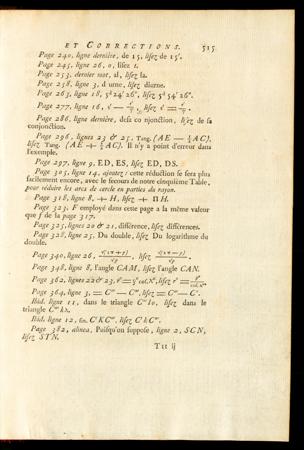 ET CORRECTIONS. 515
Page 240, ligne derniere, de 15, lisez de 15'.
Page 245, ligne 26, 0, lisez 1.
Page 253, dernier mot, al, lisez la.
Page 258, ligne 3, d urne, lisez diurne.
Page 265, ligne 18, 5ᵈ 24' 26", lisez 5ᵈ 54' 26".
Page 277, ligne 16,
Page 286, ligne derniere, desa co njonction, lisez de sa
conjonction.
Page 296, lignes 23 & 25, Tang. (AE — ½ AC),
lisez Tang. (AE + ½ AC). Il n'y a point d'erreur dans
l'exemple.
Page 297, ligne 9, ED, ES, lisez ED, DS.
Page 305, ligne 14, ajoutez : cette réduction se fera plus
facilement encore, avec le secours de notre cinquième Table,
pour réduire les arcs de cercle en parties du rayon.
Page 318, ligne 8, + H, lisez + Π H.
Page 323. F employé dans cette page a la même valeur
que f de la page 317.
Page 325, lignes 20 & 21, différence, lisez différences.
Page 328, ligne 25. Du double, lisez Du logarithme du
double.
Page 340, ligne 26, lisez
Page 348, ligne 8, l'angle CAM, lisez l'angle CAN.
Page 362, lignes 22 & 23, lisez
Page 364, ligne 3, lisez
Ibid. ligne 11, dans le triangle lisez dans le
triangle
Ibid. ligne 12, lisez
Page 382, alinea, Puisqu'on suppose, ligne 2, SCN,
lisez STN.
Ttt ij